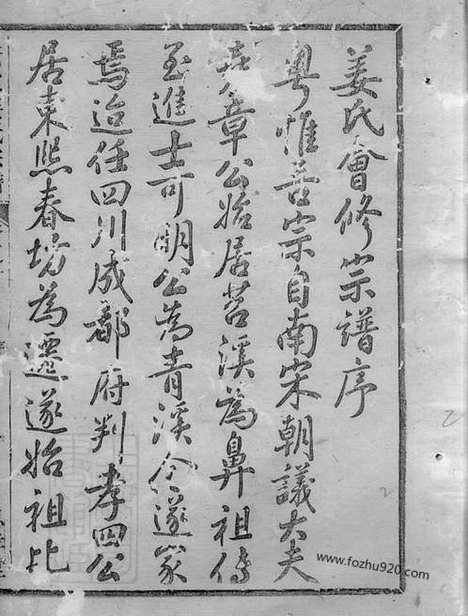 姜氏會修宗譜序
粤惟吾宗自南宋朝議大夫
堯章公始居苕溪為鼻祖傳
至進士可明公為青溪令遂家
焉迨任四川成都府判孝四公
居東熙春坊為遷遂始祖比
www.fozhu920.com